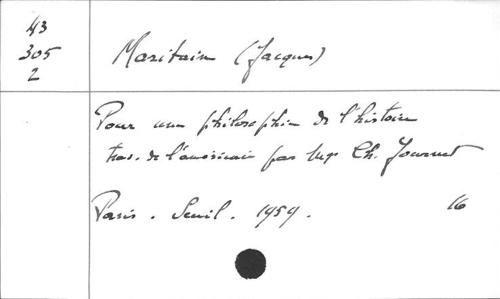 43
305
2
Maritain (Jacques)
Pour une philosophie de l'histoire
trad. de l'américain par Mgr Ch. Journet
Paris. Seuil. 1959.
16